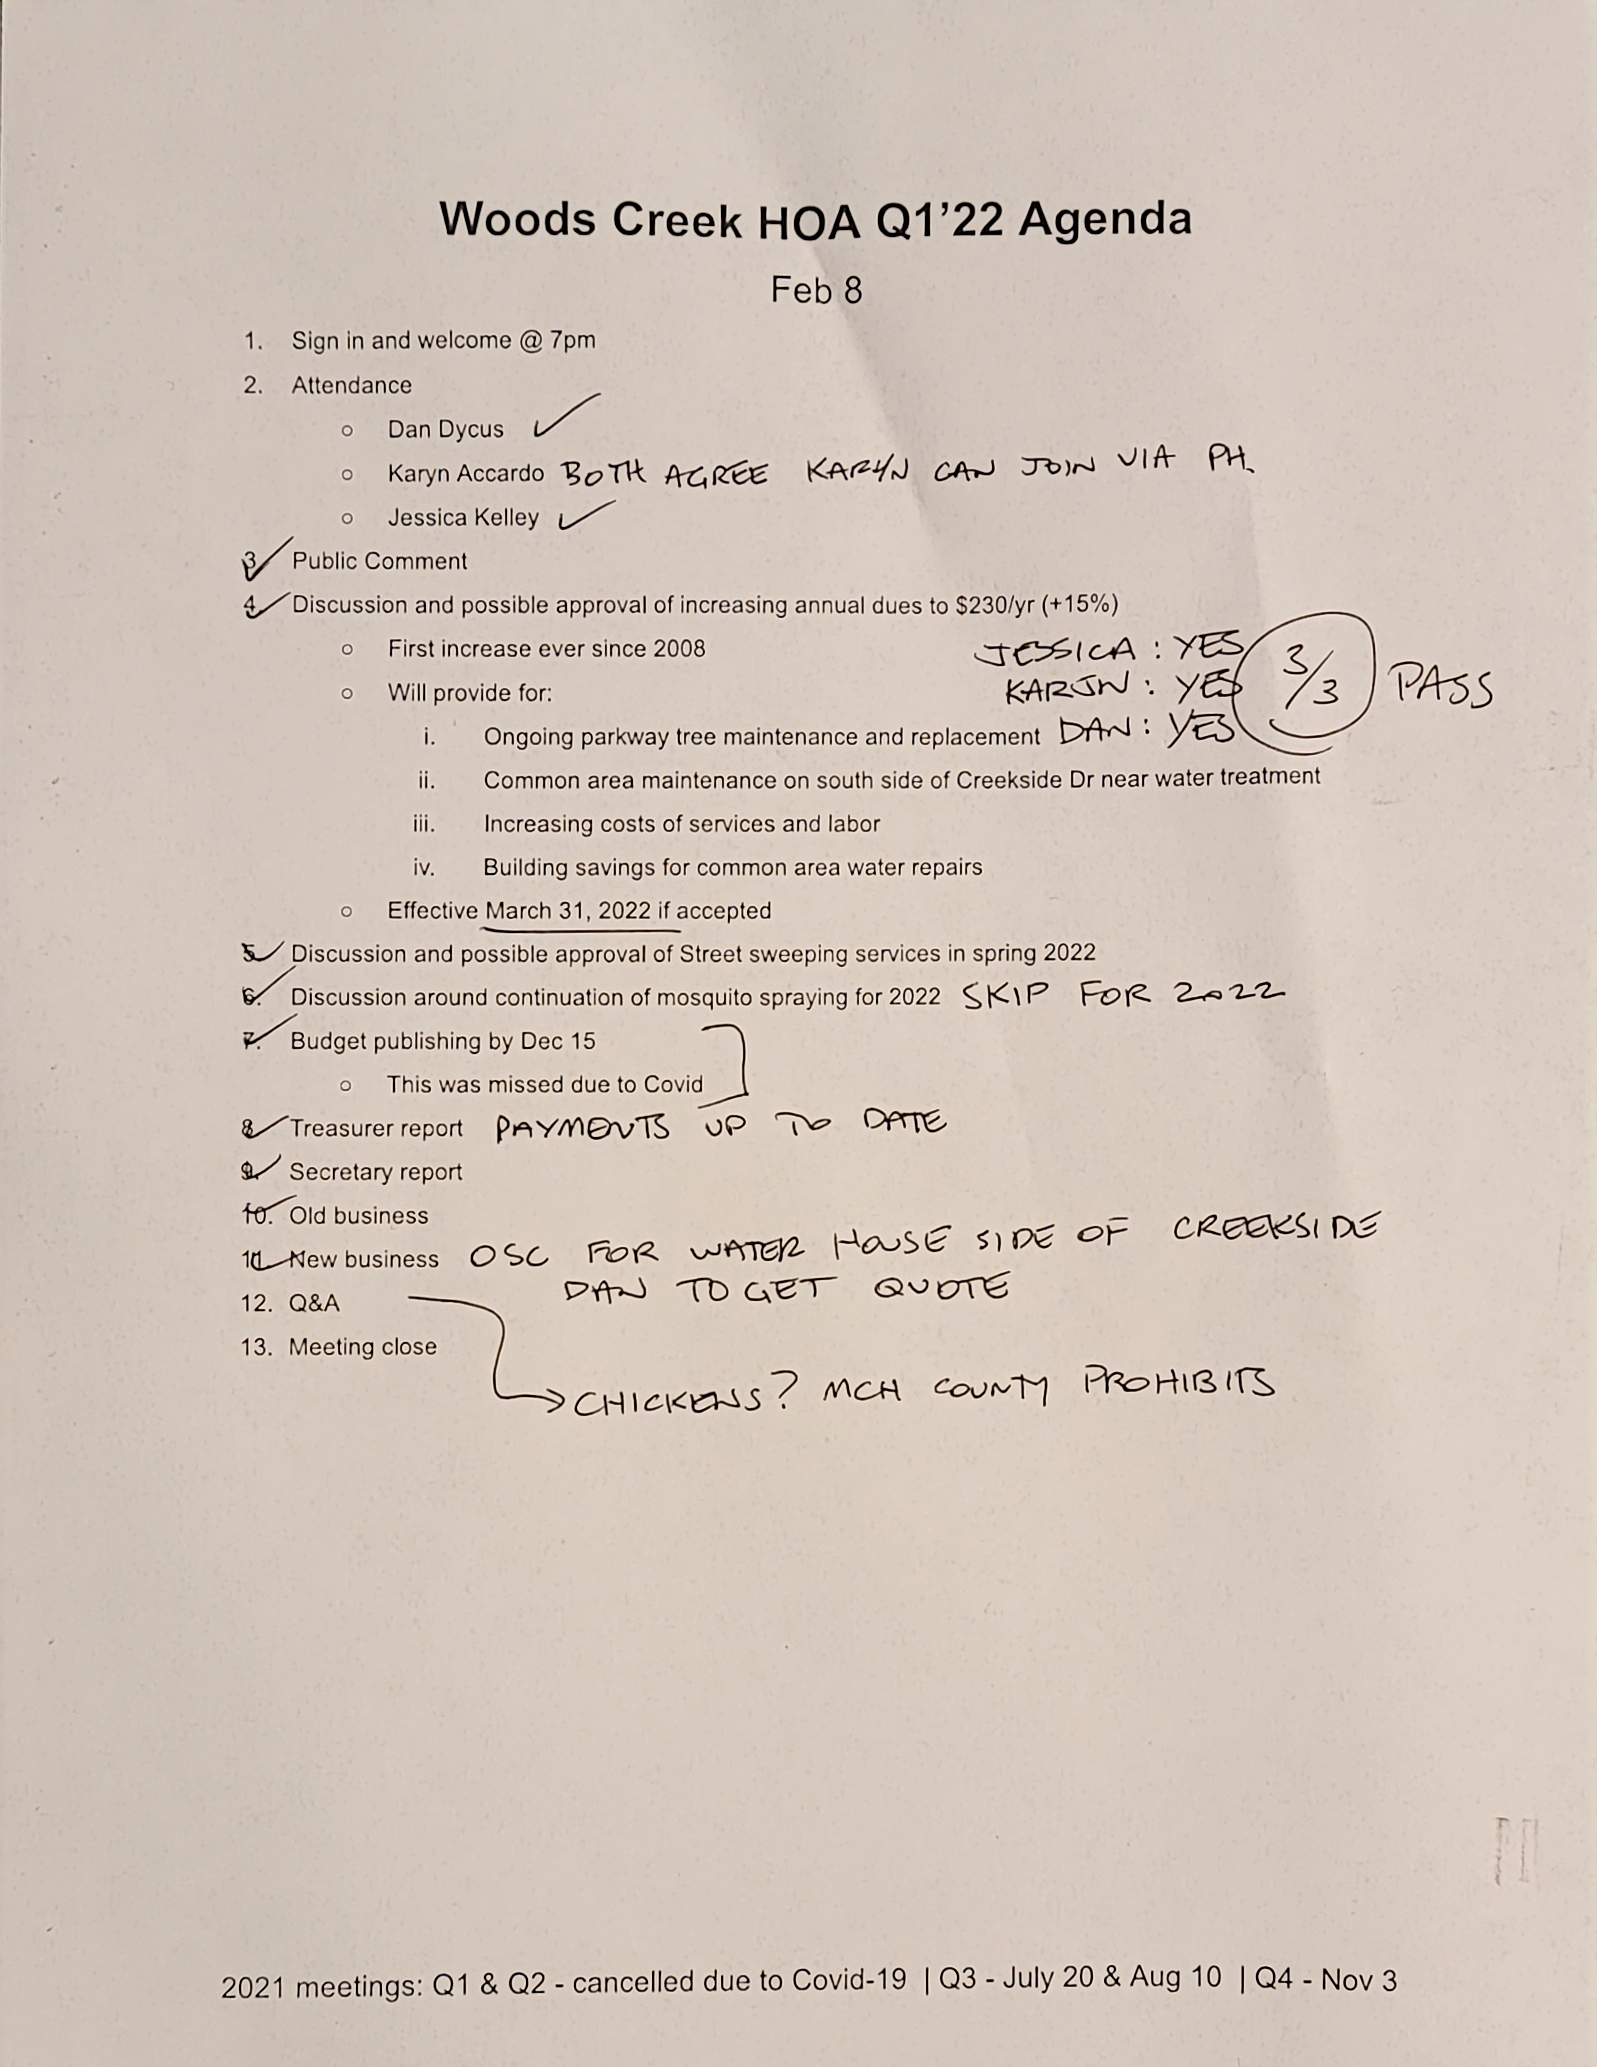 Woods Creek HOA Q1’22 Agenda
Feb 8
1. Sign in and welcome @ 7pm
2. Attendance
○ Dan Dycus ✓
○ Karyn Accardo BOTH AGREE KARYN CAN JOIN VIA PH.
○ Jessica Kelley ✓
3. Public Comment
4. Discussion and possible approval of increasing annual dues to $230/yr (+15%)
○ First increase ever since 2008 JESSICA: YES
○ Will provide for: KARYN: YES 3/3 PASS
i. Ongoing parkway tree maintenance and replacement DAN: YES
ii. Common area maintenance on south side of Creekside Dr near water treatment
iii. Increasing costs of services and labor
iv. Building savings for common area water repairs
○ Effective March 31, 2022 if accepted
5. Discussion and possible approval of Street sweeping services in spring 2022
6. Discussion around continuation of mosquito spraying for 2022 SKIP FOR 2022
7. Budget publishing by Dec 15
○ This was missed due to Covid
8. Treasurer report PAYMENTS UP TO DATE
9. Secretary report
10. Old business
11. New business OSC FOR WATER HOUSE SIDE OF CREEKSIDE
DAN TO GET QUOTE
12. Q&A
13. Meeting close
→ CHICKENS? MCH COUNTY PROHIBITS
2021 meetings: Q1 & Q2 - cancelled due to Covid-19 | Q3 - July 20 & Aug 10 | Q4 - Nov 3